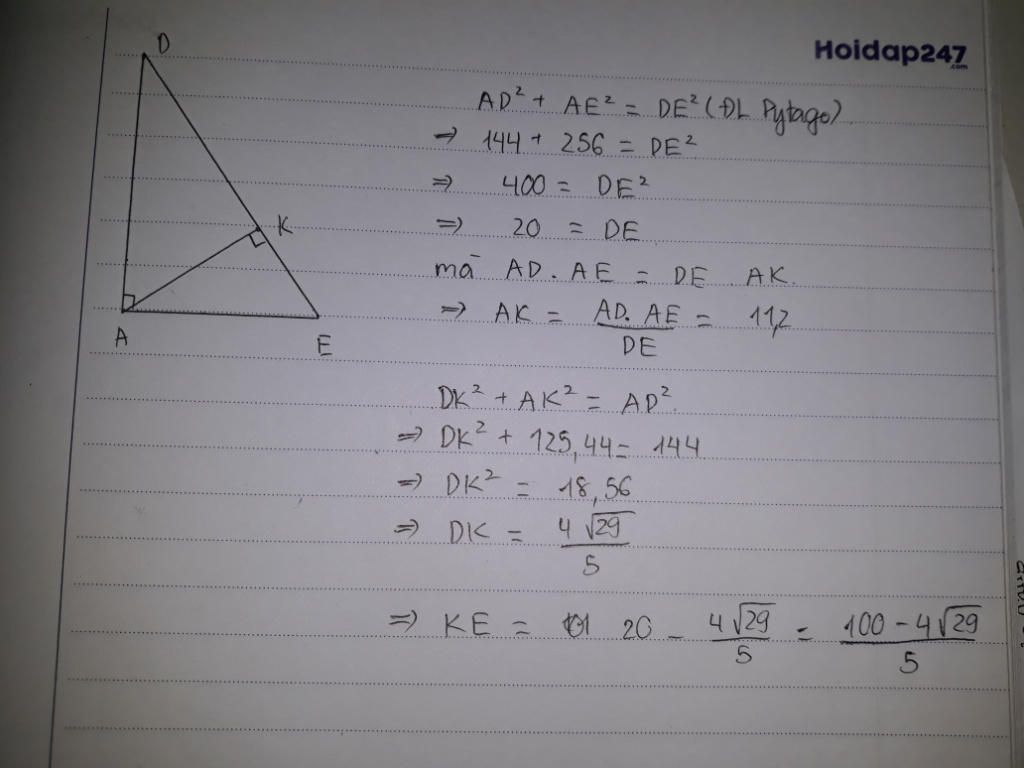 D
Hoidap247
.com
AD² + AE² = DE² (ĐL Pytago)
⇒ 144 + 256 = DE²
⇒ 400 = DE²
K
⇒ 20 = DE
mà AD. AE = DE. AK.
⇒ AK = AD. AE / DE = 11,2
A
E
DK² + AK² = AD².
⇒ DK² + 125,44 = 144
⇒ DK² = 18,56
⇒ DK = 4√29 / 5
⇒ KE = 20 - 4√29 / 5 = 100 - 4√29 / 5